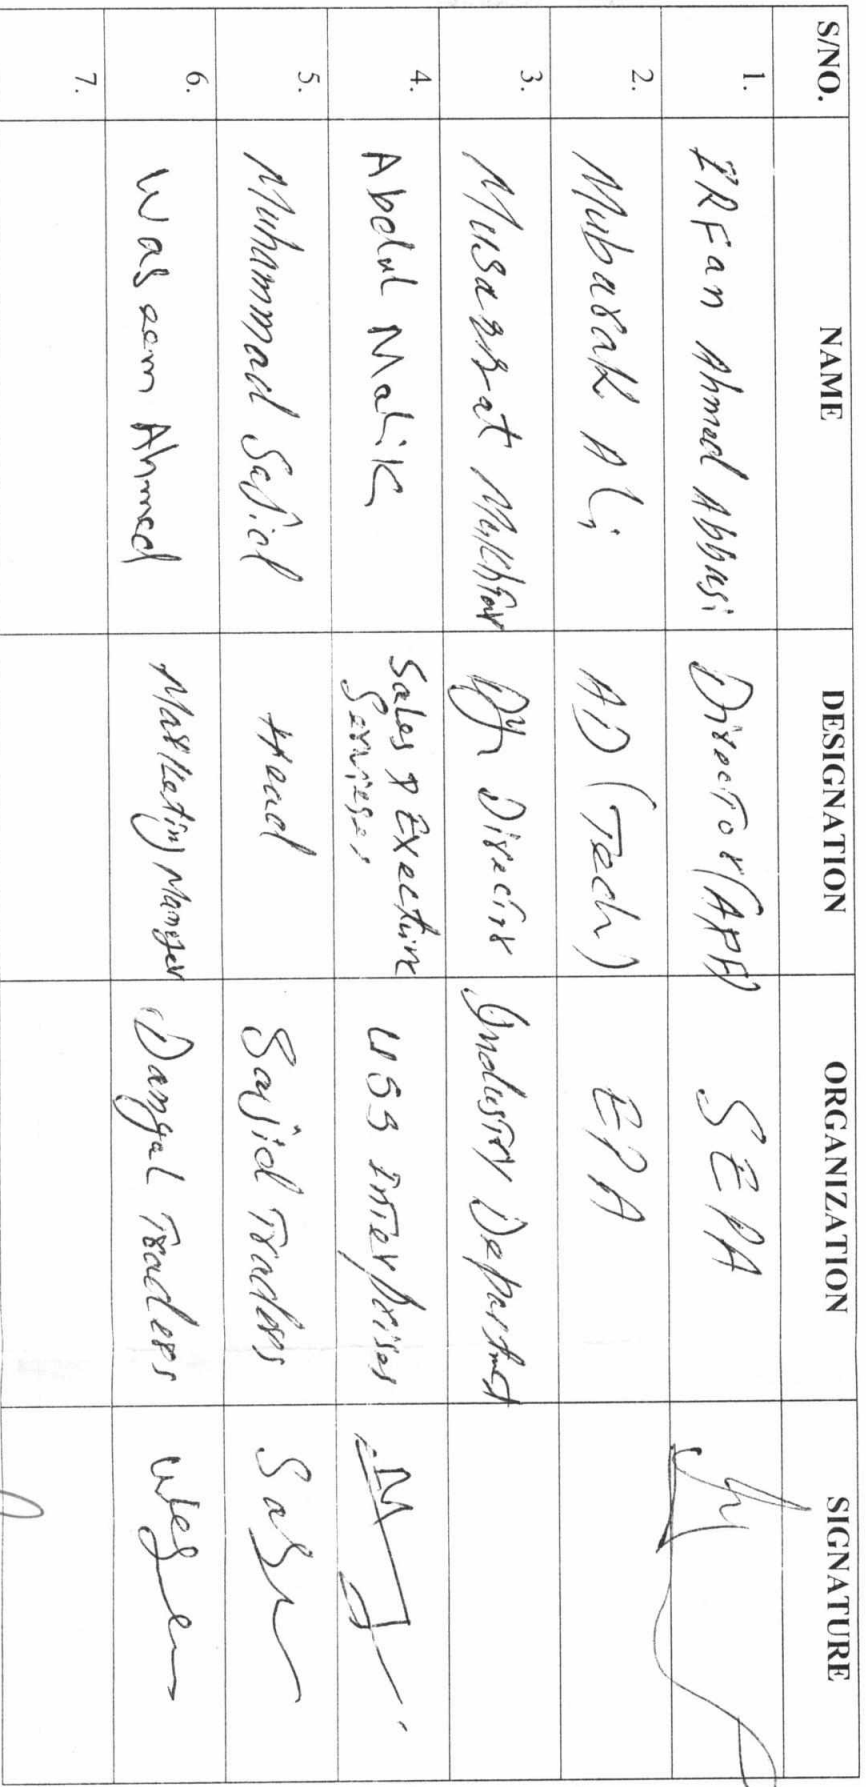 S/NO. NAME DESIGNATION ORGANIZATION SIGNATURE
1. IRFan Ahmed Abbasi Director (APA) SEPA
2. Mubarak Ali AD (Tech) EPA
3. Musarrat Mukhtar Dy. Director Industry Department
4. Abdul Malik Sales & Exective USS Interprises
Servieses
5. Muhammad Sajid Head Sajid Traders
6. Waseem Ahmed Marketing Manager Dangal Traders
7.